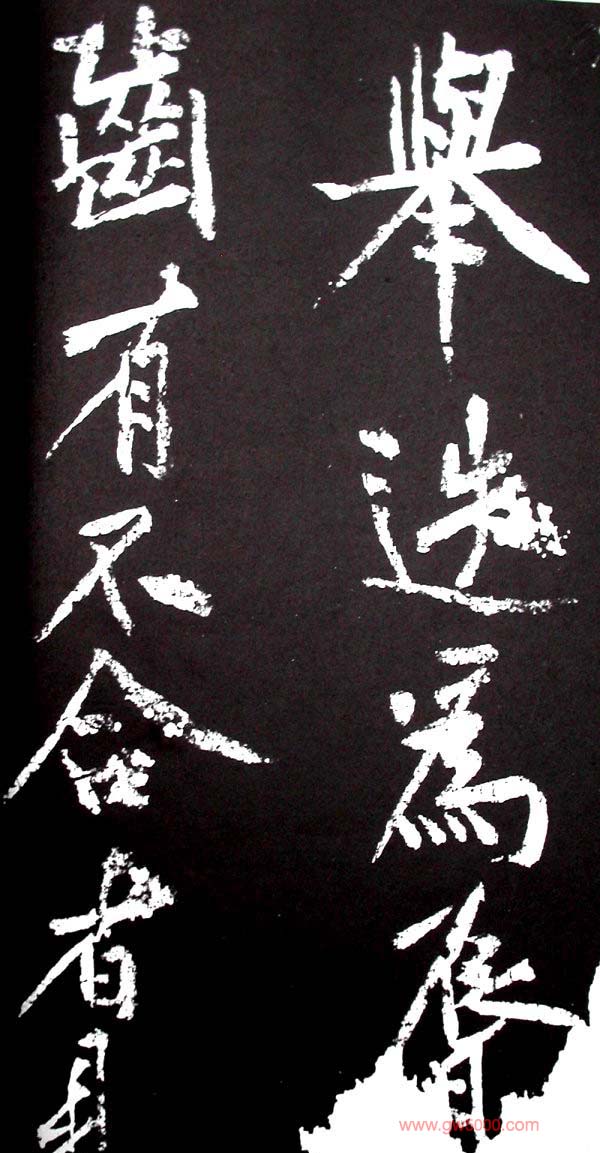 舉迭為脣
齒有不合者
www.gw5000.com